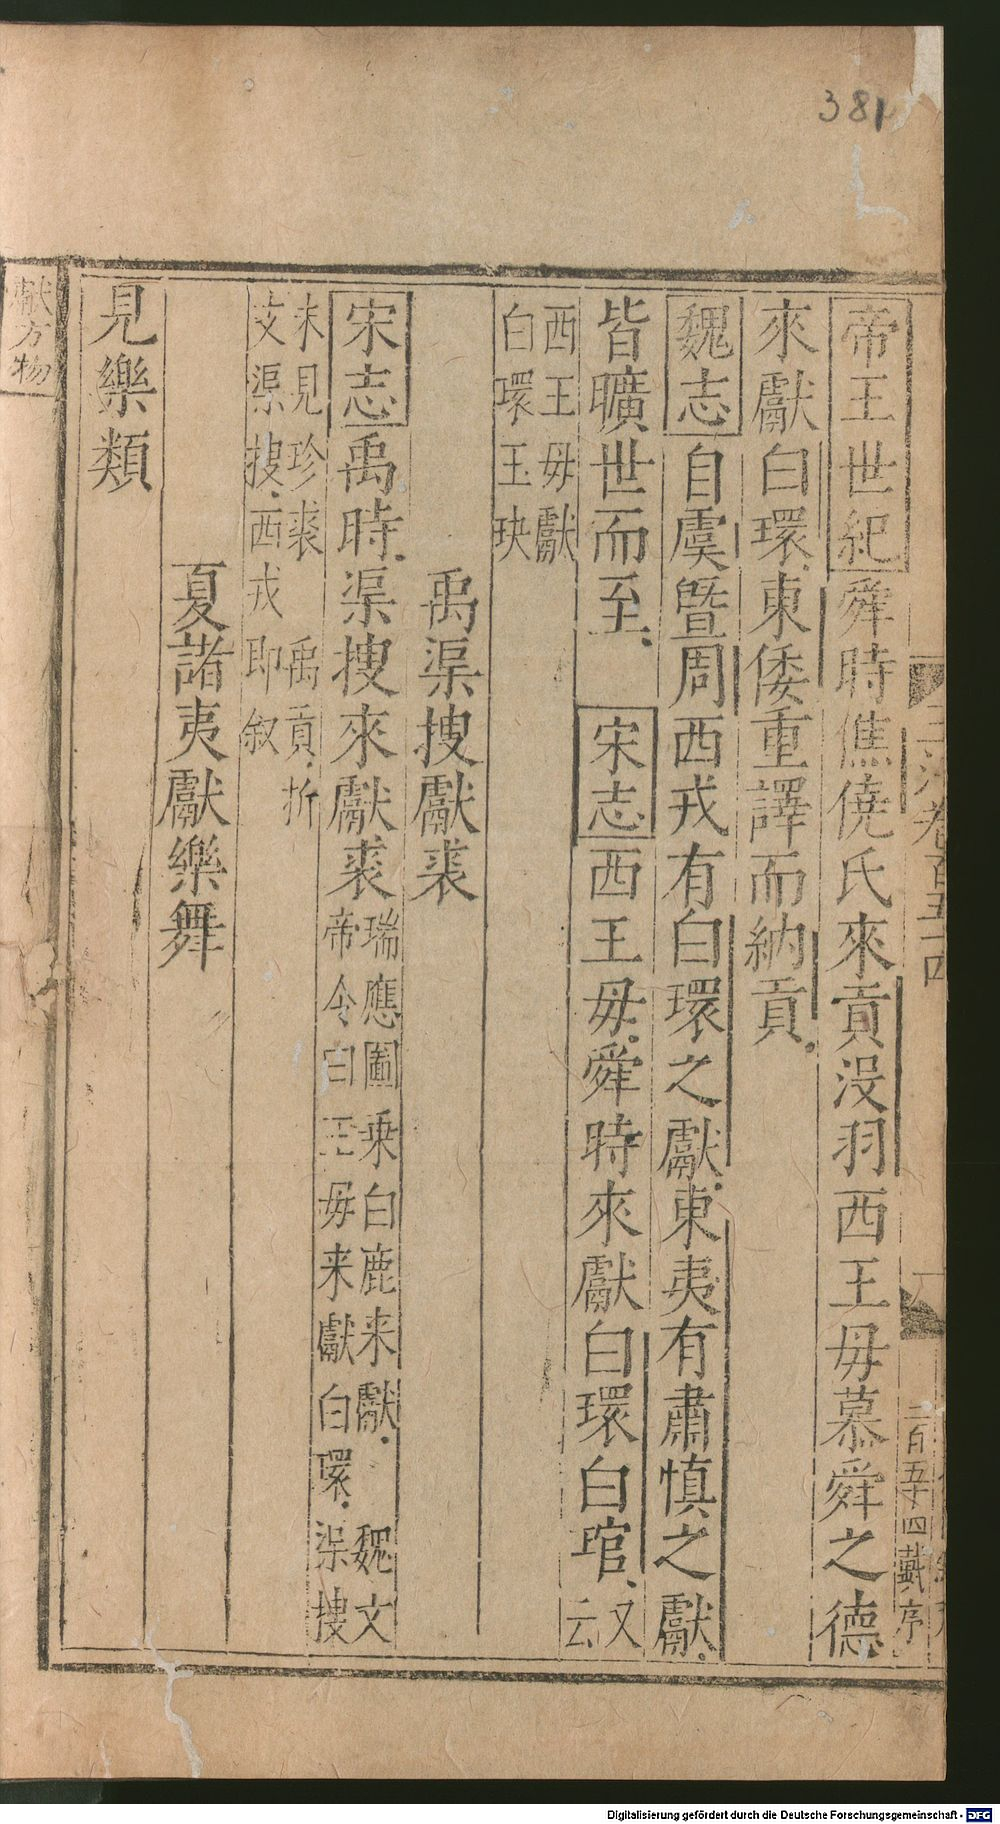 381
帝王世紀舜時僬僥氏來貢没羽西王毋慕舜之德
來獻白環東倭重譯而納貢
魏志自虞曁周西戎有白環之獻東夷有肅慎之獻
皆曠世而至 宋志西王毋舜時來獻白環白琯又云
西王毋獻
白環玉玦
禹渠搜獻裘
宋志禹時渠搜來獻裘
瑞應圖乗白鹿来獻 魏文
帝令曰王毋来獻白環渠搜
未見珍裘 禹貢析
支渠搜西戎即叙
夏諸夷獻樂舞
見樂類
獻方物
卷百五十四
二百五十四
Digitalisierung gefördert durch die Deutsche Forschungsgemeinschaft - DFG